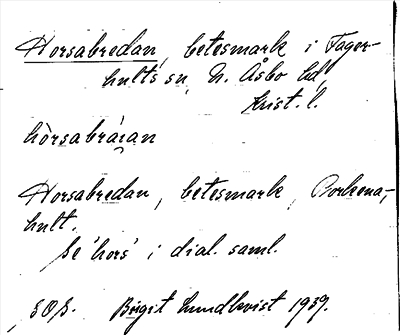 Horsabredan, betesmark i Fager-
hults sn, N. Åsbo hd,
Krist. l.
hòrsabráian
Horsabredan, betesmark, Porkena-
hult.
Se 'hors' i dial. saml.
SOS. Birgit Lundkvist 1939.